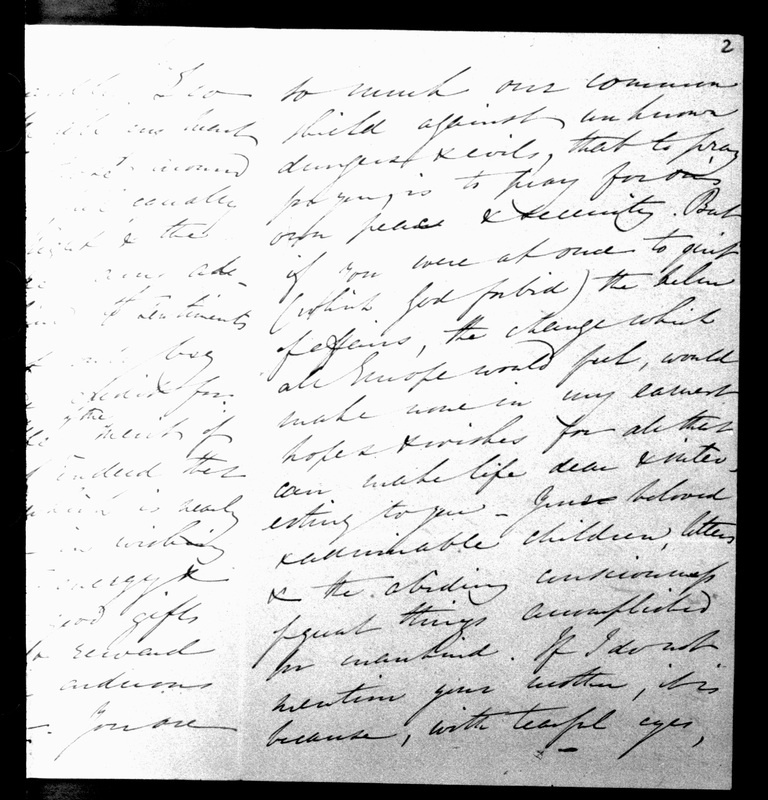 2
I do
heart
around
equally
& the
ade-
sentiments
beg
for
the
merit of
indeed that
is nearly
in wishing
energy &
good gifts
reward
arduous
You are
so much our common
shield against unknown
dangers & evils, that to pray
for you, is to pray for our
own peace & security. But
if you were at once to quit
(which God forbid) the helm
of affairs, the change which
all Europe would feel, would
make none in my earnest
hopes & wishes for all that
can make life dear & inter-
esting to you - Your beloved
& admirable children, letters
& the abiding consciousness
of great things accomplished
for mankind. If I do not
mention your mother, it is
because, with tearful eyes,